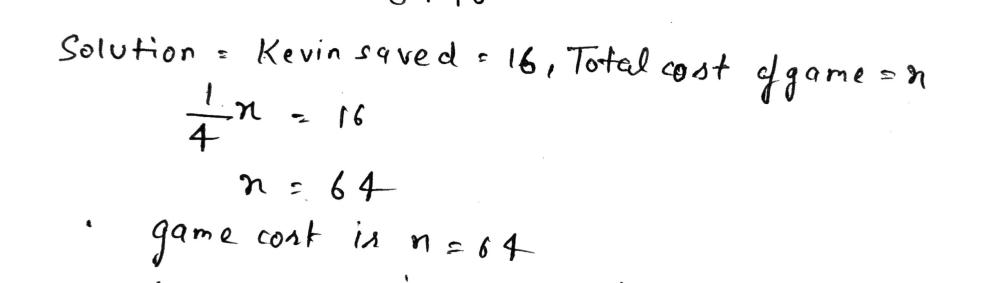 Solution = Kevin saved = 16, Total cost of game = x
1/4 x = 16
x = 64
game cost is x = 64